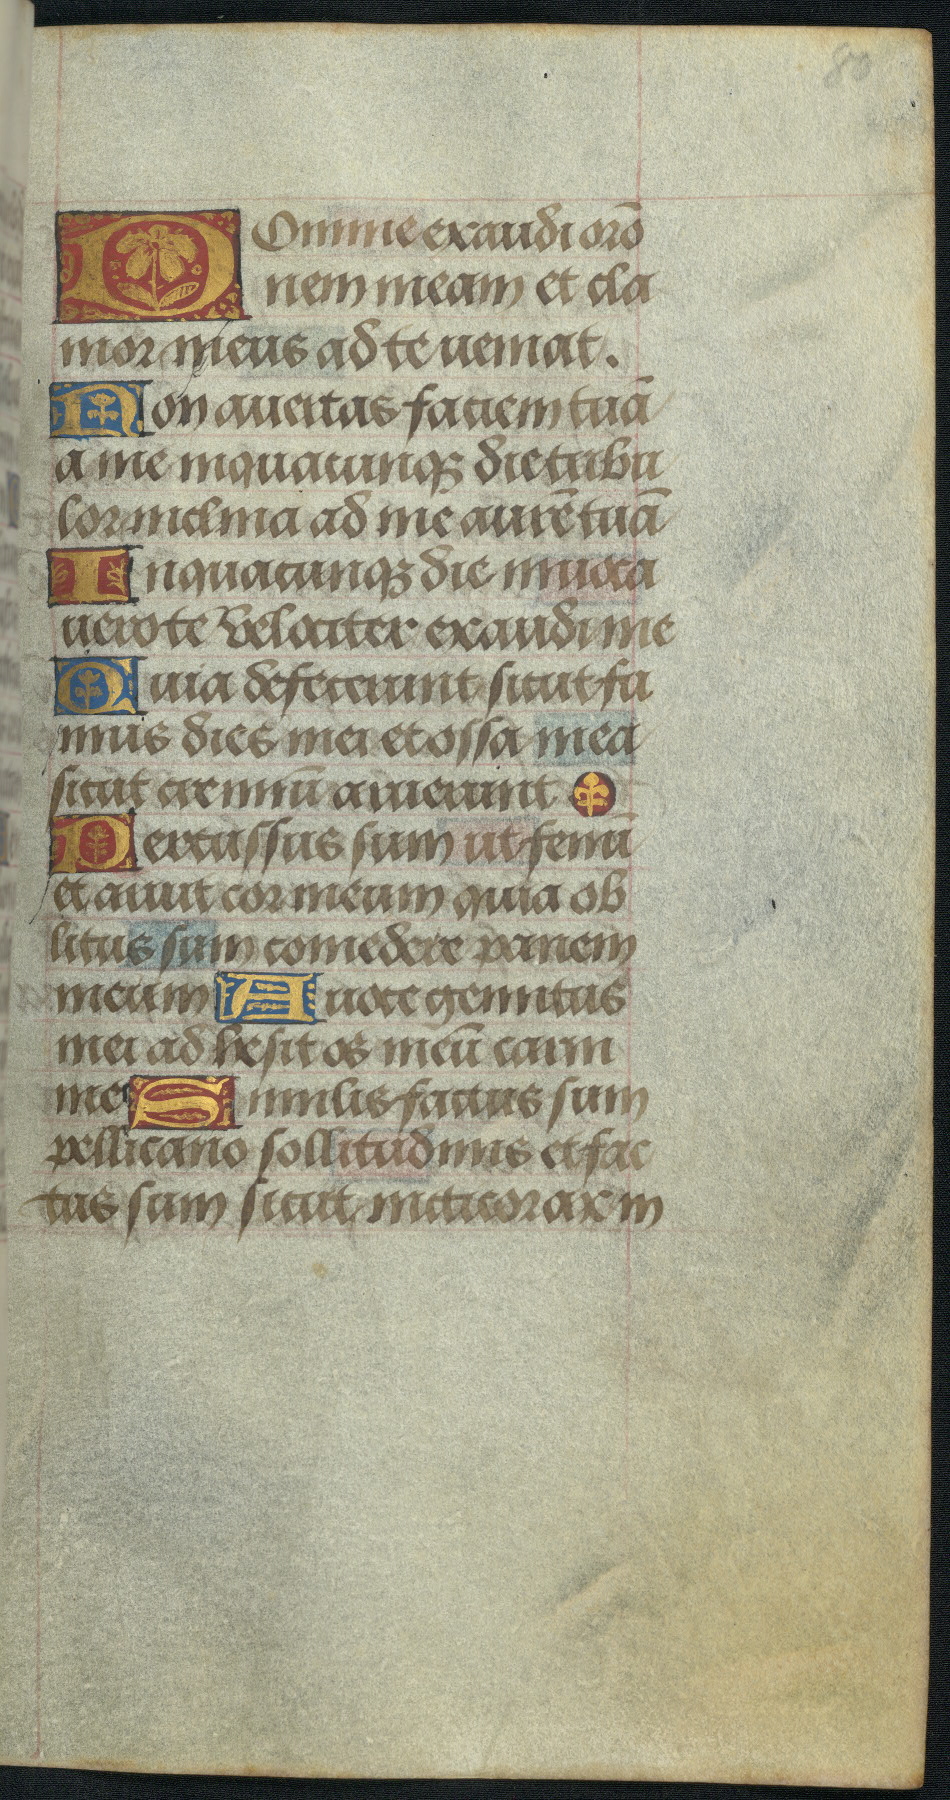 80
Domine exaudi orō
nem meam et cla
mor meus ad te ueniat.
Non auertas faciem tuā
a me inquacunqꝫ die tribu
lor inclina ad me aurē tuā
Inquacunqꝫ die inuoca
uero te velociter exaudi me
Quia defecerunt sicut fu
mus dies mei et ossa mea
sicut cremiū aruerunt
Percussus sum ut fenū
et aruit cor meum quia ob
litus sum comedere panem
meum A uoce gemitus
mei adhesit os meū carni
mee Similis factus sum
pellicano sollitudinis et fac
tus sum sicut nicticorax in